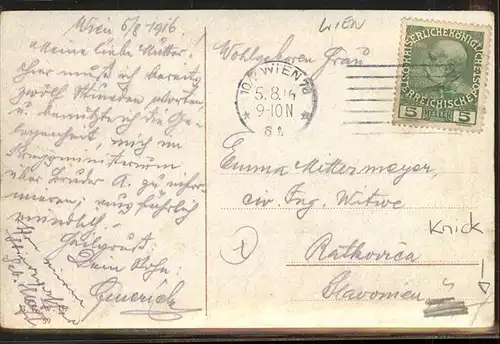 Wien 5/8 1916
Meine liebe Mutter!
Hier muß ich bereits
zwölf Stunden warten
u. benützte ich die Ge-
legenheit, mich im
Kriegsministerium
über Bruder A. zu infor-
mieren; ausführlich
mündlich.
Heilgruß:
Dein Sohn:
Emerich
WIEN
Wohlgeboren Frau
10/2 WIEN
5.8.16
9-10N
KAISERLICHE KÖNIGLICHE
ÖSTERREICHISCHE POST
5 HELLER 5
Emma Mittermeyer,
civ. Ing. Witwe
Knick
Ratkovica
Slavonien